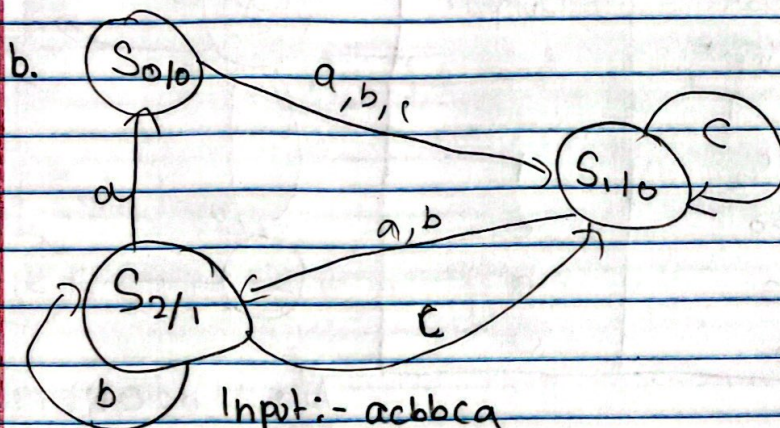 b.
S0/0
a, b, c
c
S1/0
a
a, b
S2/1
c
b
Input:- acbbca